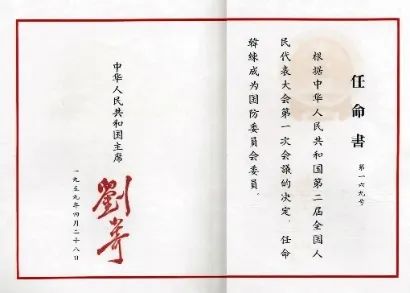 任命書
第一六九号
根据中华人民共和国第二届全国人
民代表大会第一次会議的决定，任命
韓練成为国防委員会委員。
中华人民共和国主席
劉少奇
一九五九年四月二十八日